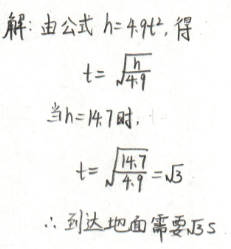 解：由公式 h=4.9t²，得
t=√(h/4.9)
当h=14.7时，
t=√(14.7/4.9)=√3
∴到达地面需要√3 s